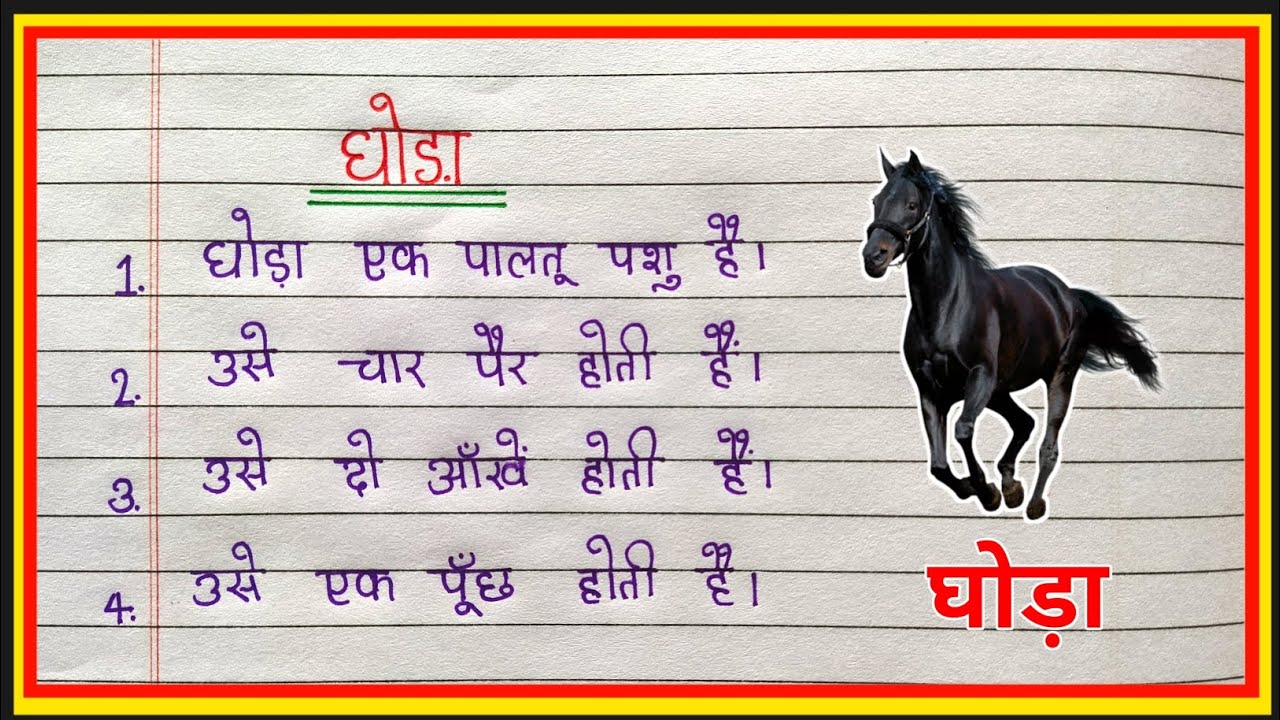 घोड़ा
1. घोड़ा एक पालतू पशु है।
2. उसे चार पैर होती हैं।
3. उसे दो आँखें होती हैं।
4. उसे एक पूँछ होती है।
घोड़ा